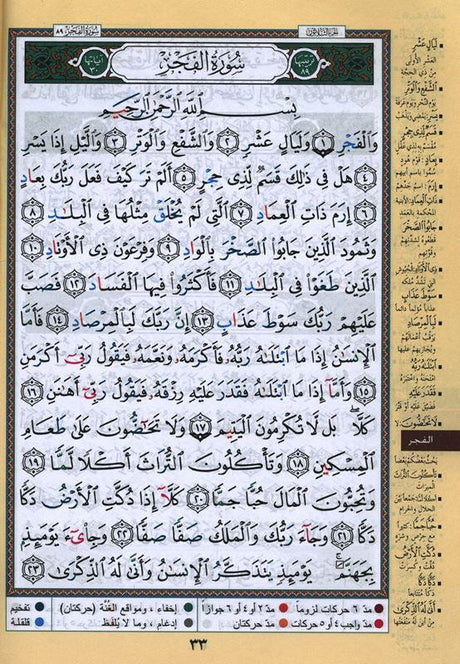 سورة الفجر ٨٩
الجزء الثلاثون
ترتيبها ٨٩
سُورَةُ الفَجْرِ
آياتها ٣٠
بِسْمِ اللَّهِ الرَّحْمَٰنِ الرَّحِيمِ
وَالْفَجْرِ ١ وَلَيَالٍ عَشْرٍ ٢ وَالشَّفْعِ وَالْوَتْرِ ٣ وَاللَّيْلِ إِذَا يَسْرِ
٤ هَلْ فِي ذَٰلِكَ قَسَمٌ لِّذِي حِجْرٍ ٥ أَلَمْ تَرَ كَيْفَ فَعَلَ رَبُّكَ بِعَادٍ
٦ إِرَمَ ذَاتِ الْعِمَادِ ٧ الَّتِي لَمْ يُخْلَقْ مِثْلُهَا فِي الْبِلَادِ ٨
وَثَمُودَ الَّذِينَ جَابُوا الصَّخْرَ بِالْوَادِ ٩ وَفِرْعَوْنَ ذِي الْأَوْتَادِ ١٠
الَّذِينَ طَغَوْا فِي الْبِلَادِ ١١ فَأَكْثَرُوا فِيهَا الْفَسَادَ ١٢ فَصَبَّ
عَلَيْهِمْ رَبُّكَ سَوْطَ عَذَابٍ ١٣ إِنَّ رَبَّكَ لَبِالْمِرْصَادِ ١٤ فَأَمَّا
الْإِنسَانُ إِذَا مَا ابْتَلَاهُ رَبُّهُ فَأَكْرَمَهُ وَنَعَّمَهُ فَيَقُولُ رَبِّي أَكْرَمَنِ
١٥ وَأَمَّا إِذَا مَا ابْتَلَاهُ فَقَدَرَ عَلَيْهِ رِزْقَهُ فَيَقُولُ رَبِّي أَهَانَنِ ١٦
كَلَّا ۖ بَل لَّا تُكْرِمُونَ الْيَتِيمَ ١٧ وَلَا تَحَاضُّونَ عَلَىٰ طَعَامِ
الْمِسْكِينِ ١٨ وَتَأْكُلُونَ التُّرَاثَ أَكْلًا لَّمًّا ١٩
وَتُحِبُّونَ الْمَالَ حُبًّا جَمًّا ٢٠ كَلَّا إِذَا دُكَّتِ الْأَرْضُ دَكًّا
دَكًّا ٢١ وَجَاءَ رَبُّكَ وَالْمَلَكُ صَفًّا صَفًّا ٢٢ وَجِيءَ يَوْمَئِذٍ
بِجَهَنَّمَ ۚ يَوْمَئِذٍ يَتَذَكَّرُ الْإِنسَانُ وَأَنَّىٰ لَهُ الذِّكْرَىٰ ٢٣
لَيَالٍ عَشْرٍ
العشر الأولى
من ذي الحجة
الشَّفْعِ وَالْوَتْرِ
يوم النحر ويوم عرفة
ذَاتِ الْعِمَادِ
جَابُوا الصَّخْرَ
سَوْطَ عَذَابٍ
لَبِالْمِرْصَادِ
ابْتَلَاهُ رَبُّهُ
فَقَدَرَ عَلَيْهِ
الفجر
الميراث
دُكَّتِ الْأَرْضُ
دَكًّا دَكًّا
أَنَّىٰ لَهُ الذِّكْرَىٰ
مدّ ٦ حركات لزوماً مدّ ٢ أو ٤ أو ٦ جوازاً إخفاء، ومواقع الغُنَّة (حركتان) تفخيم
مدّ واجب ٤ أو ٥ حركات مدّ حركتان إدغام، وما لا يُلفَظ قلقلة
٣٣